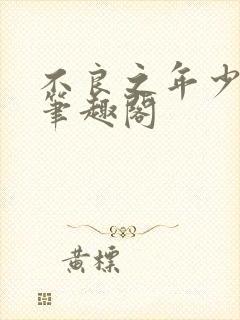 不良之年少
筆趣閣
黄標